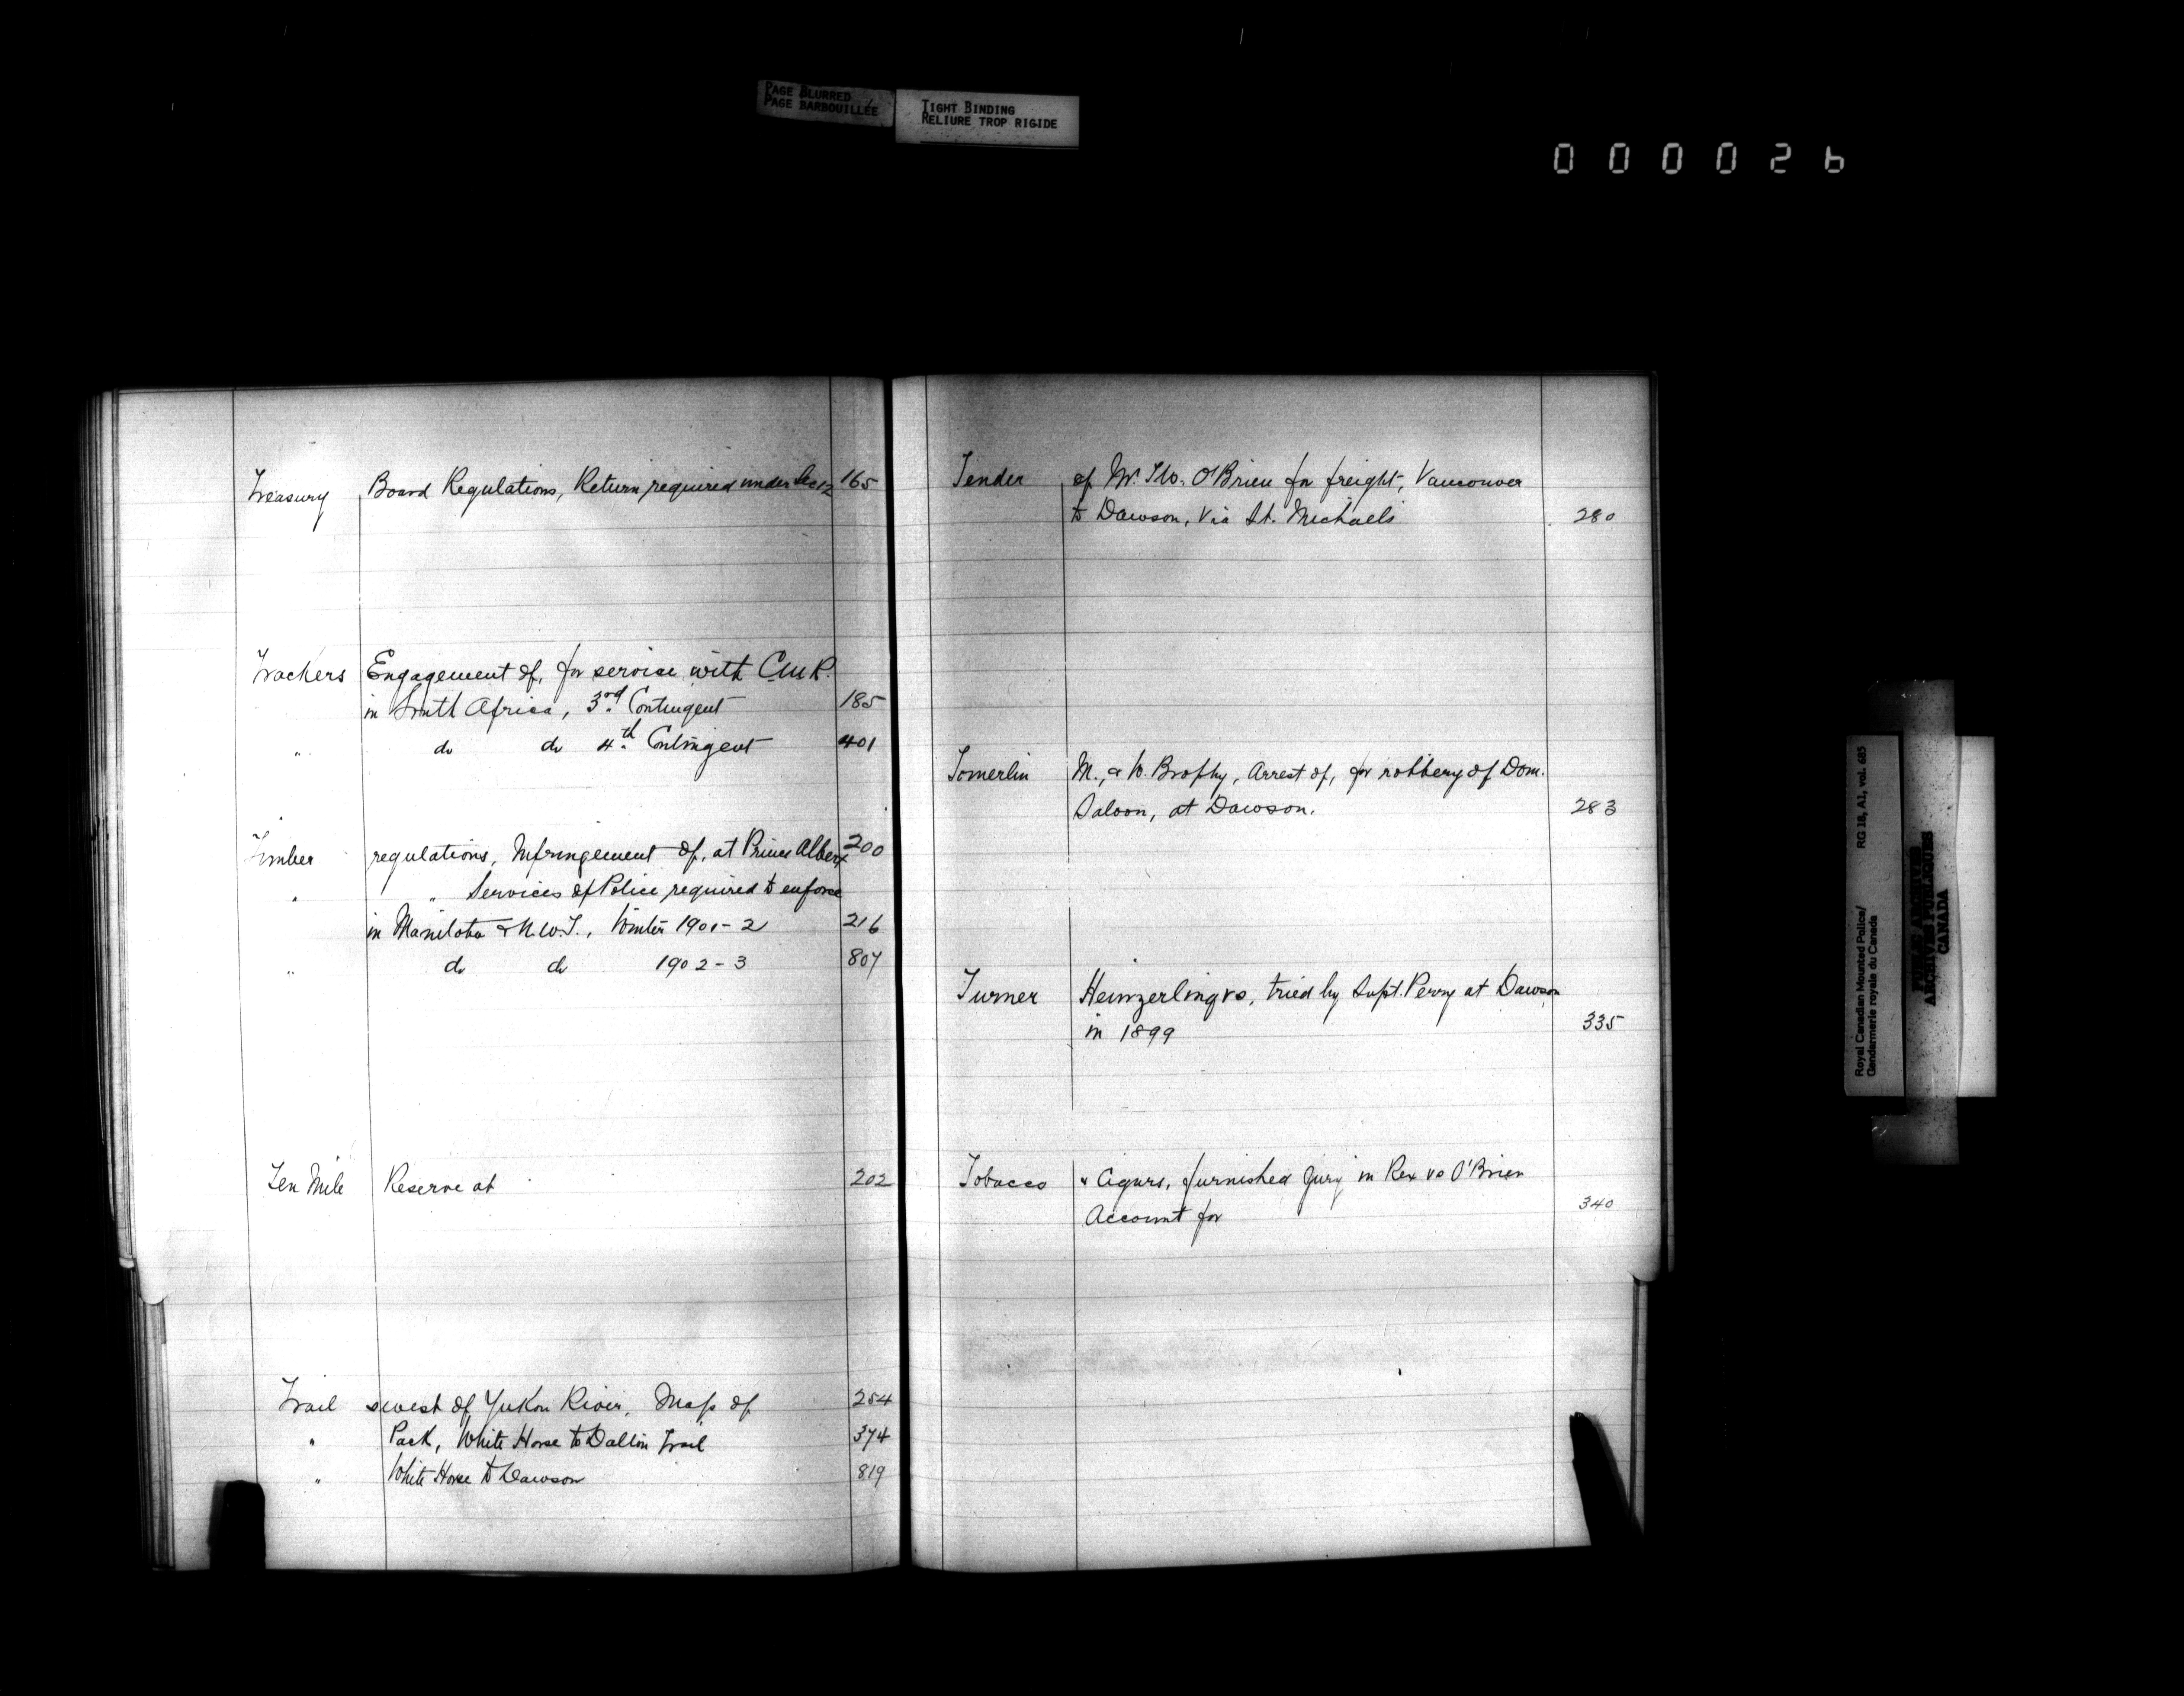 PAGE BLURRED
PAGE BARBOUILLÉE
TIGHT BINDING
RELIURE TROP RIGIDE
000026
Treasury Board Regulations, Return required under Sec 12 165
Trackers Engagement of, for service with C.M.R.
in South Africa, 3rd Contingent 185
" do do 4th Contingent 401
Timber regulations, Infringement of, at Prince Albert 200
" " Services of Police required to enforce
in Manitoba & N.W.T., Winter 1901-2 216
" do do 1902-3 807
Ten Mile Reserve at 202
Trail s west of Yukon River, Map of 254
" Pack, White Horse to Dalton Trail 374
" White Horse to Dawson 819
Tender of Mr. T.W. O'Brien for freight, Vancouver
to Dawson, via St. Michaels 280
Tomerlin M., & W. Brophy, Arrest of, for robbery of Dom.
Saloon, at Dawson. 283
Turner Heinzerling vs, tried by Supt. Perry at Dawson
in 1899 335
Tobacco & Cigars, furnished Jury in Rex vs O'Brien
Account for 340
Royal Canadian Mounted Police/
Gendarmerie royale du Canada
RG 18, A1, vol. 685
PUBLIC ARCHIVES
ARCHIVES PUBLIQUES
CANADA